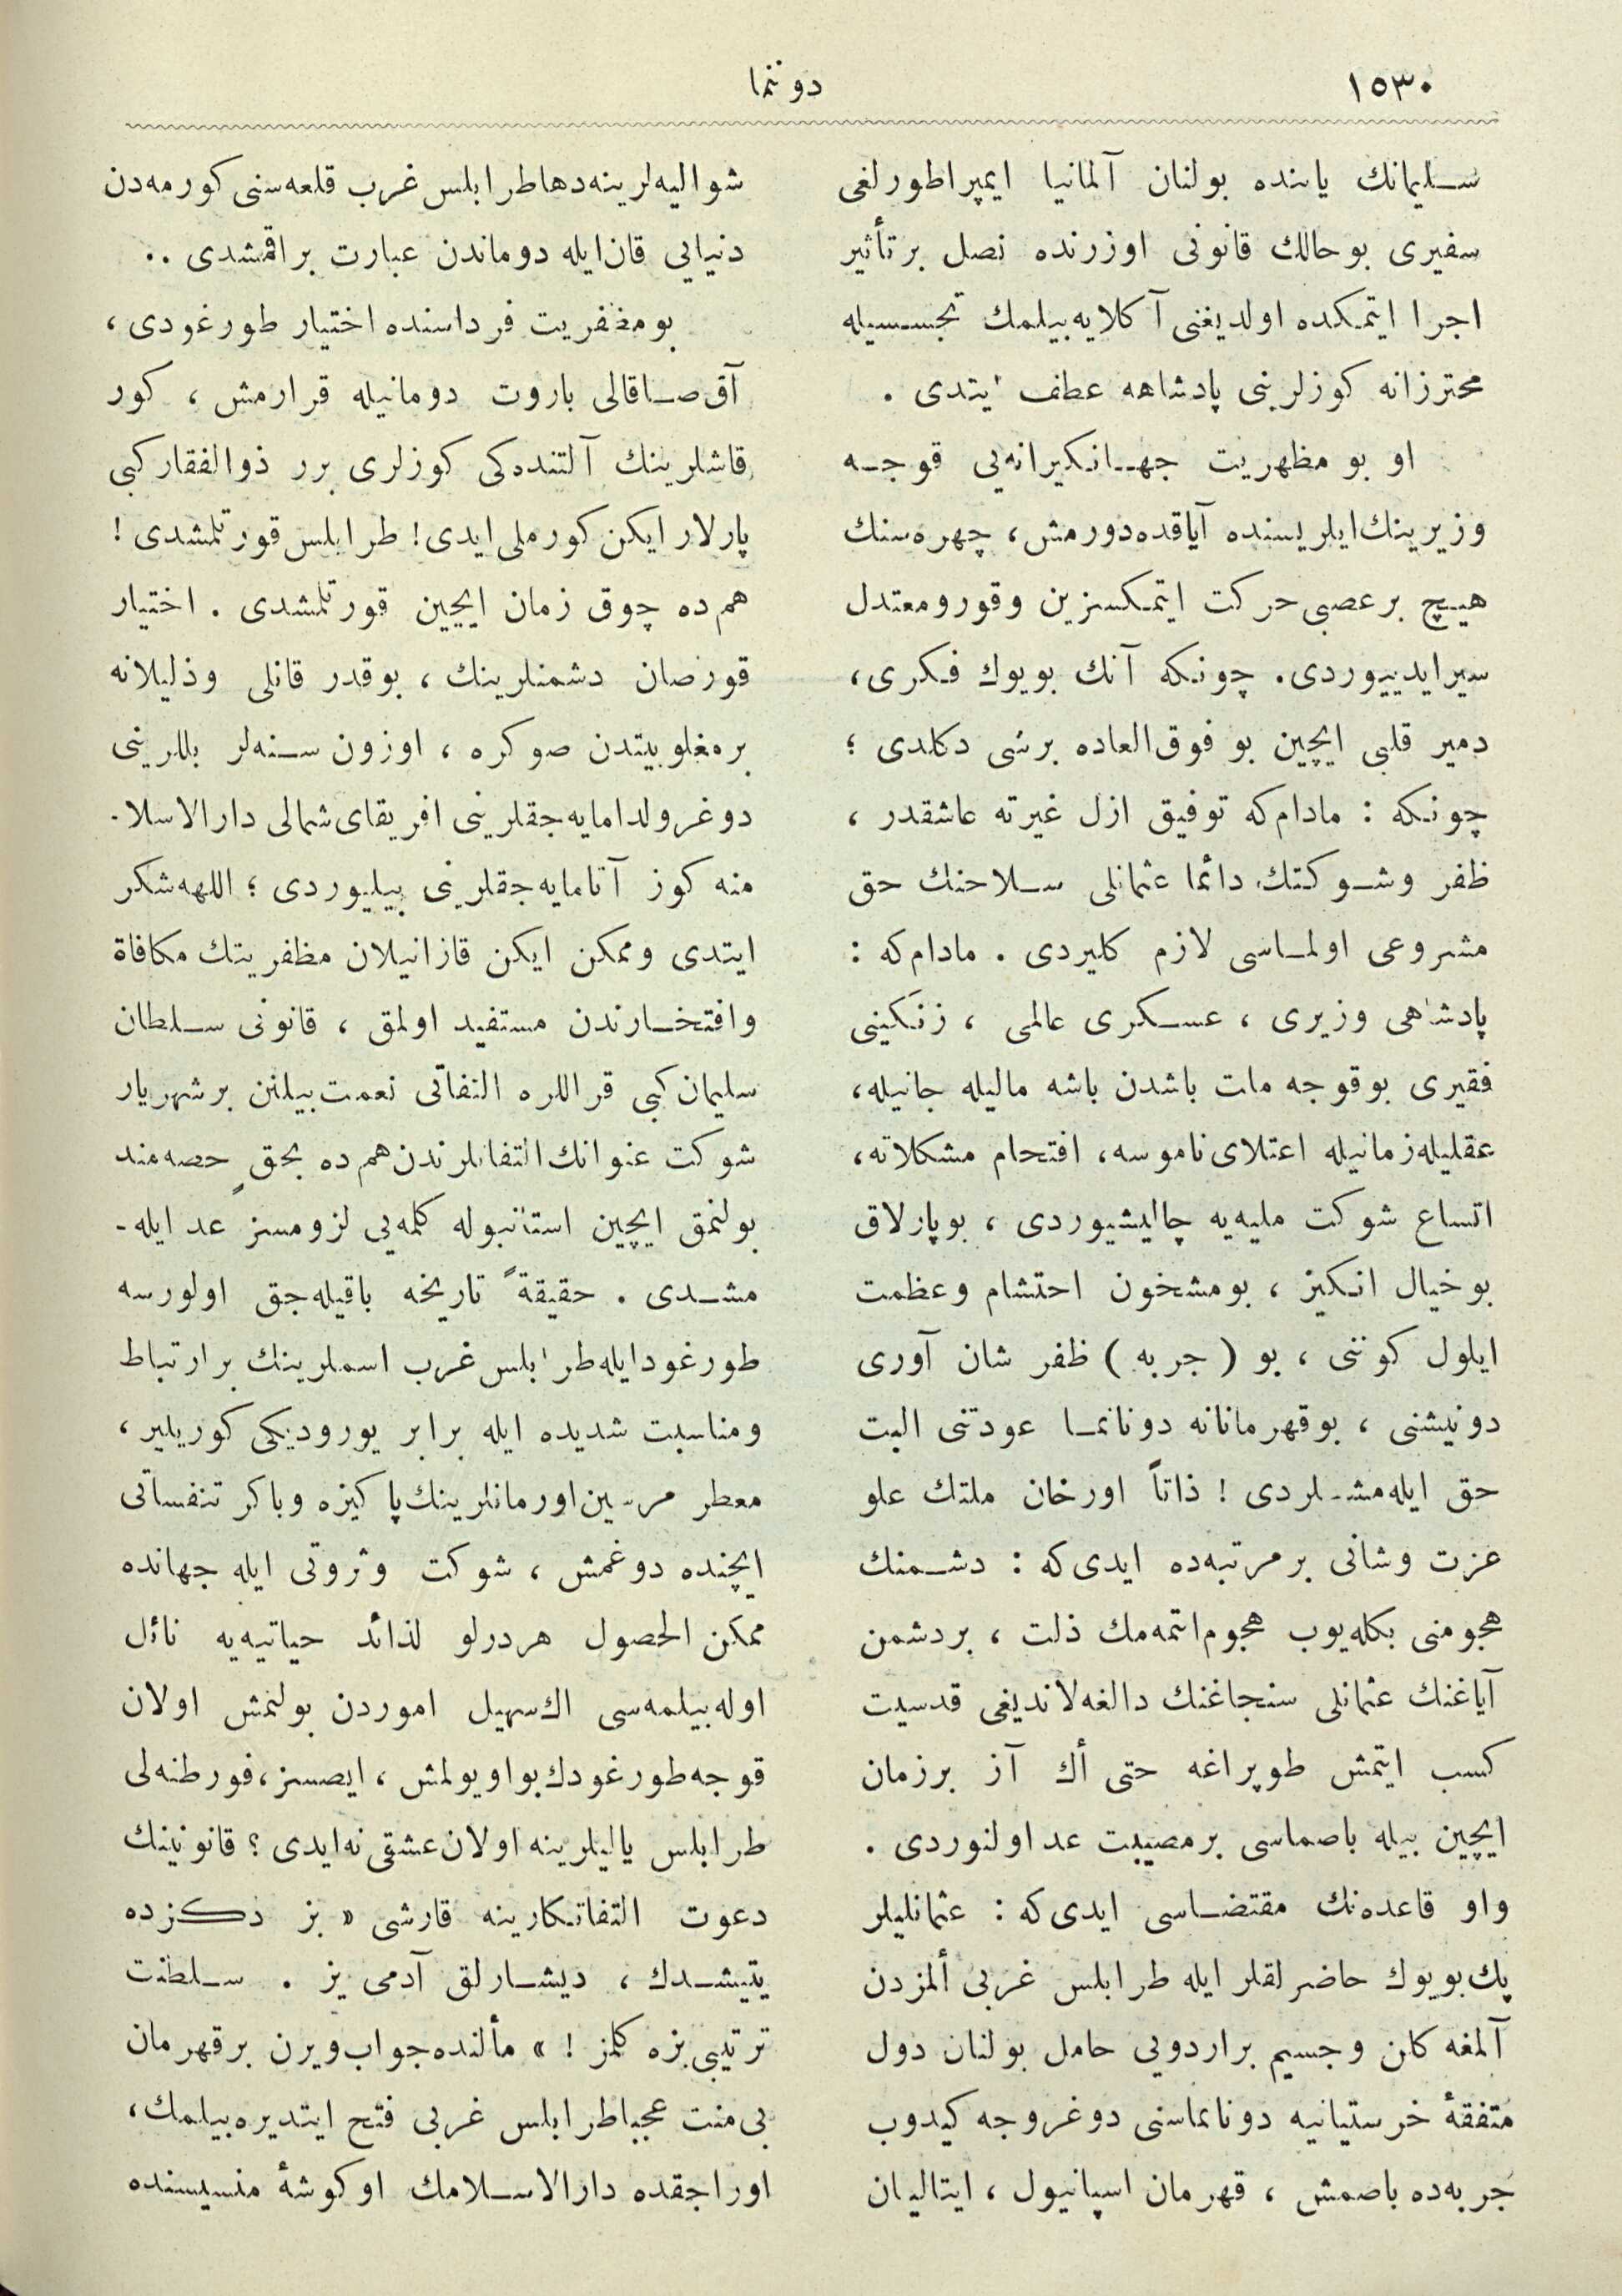 ١٥٣٠
دوننما
سليمانك يانده بولنان آلمانيا ايمپراطورلغى
سفيرى بوحالك قانونى اوزرنده نصل برتأثير
اجرا ايتمكده اولديغنى آكلايه‌بيلمك تجسسيله
محترزانه كوزلرينى پادشاهه عطف ايتدى .
او بو مظهريت جهانكيرانه‌يى قوجه
وزيرينك ايلريسنده آياقده دورمش، چهره‌سنك
هيچ برعصبى حركت ايتمكسزين وقورومعتدل
سيرايدييوردى. چونكه آنك بويوك فكرى،
دمير قلبى ايچين بو فوق‌العاده برشى دكلدى ؛
چونكه : مادام‌كه توفيق ازل غيرته عاشقدر ،
ظفر وشوكتك دائما عثمانلى سلاحنك حق
مشروعى اولماسى لازم كليردى . مادام‌كه :
پادشاهى وزيرى ، عسكرى عالمى ، زنكينى
فقيرى بوقوجه ملت باشدن باشه ماليله جانيله،
عقليله زمانيله اعتلاى ناموسه، اقتحام مشكلاته،
اتساع شوكت مليه‌يه چاليشيوردى ، بوپارلاق
بوخيال انكيز ، بومشخون احتشام وعظمت
ايلول كوننى ، بو ( جربه ) ظفر شان آورى
دونيشنى ، بوقهرمانانه دونانما عودتنى البت
حق ايله‌مشلردى ! ذاتاً اورخان ملتك علو
عزت وشانى برمرتبه‌ده ايدى‌كه : دشمنك
هجومنى بكله‌يوب هجوم‌اتمه‌مك ذلت ، بردشمن
آياغنك عثمانلى سنجاغنك دالغه‌لانديغى قدسيت
كسب ايتمش طوپراغه حتى أك آز برزمان
ايچين بيله باصماسى برمصيبت عد اولنوردى .
واو قاعده‌نك مقتضاسى ايدى‌كه : عثمانليلر
پك بويوك حاضرلقلر ايله طرابلس غربى ألمزدن
آلمغه كلن وجسيم براردويى حامل بولنان دول
متفقهٔ خرستيانيه دونانماسنى دوغروجه كيدوب
جربه‌ده باصمش ، قهرمان اسپانيول ، ايتاليان
شواليه‌لرينه دها طرابلس غرب قلعه‌سنى كورمه‌دن
دنيايى قان‌ايله دوماندن عبارت براقمشدى ..
بومظفريت فرداسنده اختيار طورغودى ،
آق صاقالى باروت دومانيله قرارمش ، كور
قاشلرينك آلتنده‌كى كوزلرى برر ذوالفقاركبى
پارلار ايكن كورملى‌ايدى! طرابلس قورتلمشدى !
هم‌ده چوق زمان ايچين قورتلمشدى . اختيار
قورصان دشمنلرينك ، بوقدر قانلى وذليلانه
برمغلوبيتدن صوكره ، اوزون سنه‌لر بللرينى
دوغرولدامايه‌جقلرينى افريقاى شمالى دارالاسلا-
منه كوز آتامايه‌جقلرينى بيليوردى ؛ اللهه شكر
ايتدى وممكن ايكن قازانيلان مظفريتك مكافاة
وافتخارندن مستفيد اولمق ، قانونى سلطان
سليمان كبى قراللره التفاتى نعمت‌بيلنن برشهريار
شوكت عنوانك التفاتلرندن هم‌ده بحقٍ حصه‌مند
بولنمق ايچين استانبوله كلمه‌يى لزومسز عد ايله-
مشدى . حقيقةً تاريخه باقيله‌جق اولورسه
طورغودايله طرابلس غرب اسملرينك برارتباط
ومناسبت شديده ايله برابر يوروديكى كوريلير ،
معطر مرسين اورمانلرينك پاكيزه وباكر تنفساتى
ايچنده دوغمش ، شوكت وثروتى ايله جهانده
ممكن الحصول هردرلو لذائذ حياتيه‌يه نائل
اوله‌بيلمه‌سى اك سهيل اموردن بولنمش اولان
قوجه طورغودك بواويولمش ، ايصسز، فورطنه‌لى
طرابلس ياليلرينه اولان عشقى نه‌ايدى ؟ قانونينك
دعوت التفاتكارينه قارشى « بز دكزده
يتيشدك ، ديشارلق آدمى يز . سلطنت
ترتيبى بزه كلمز ! » مألنده جواب‌ويرن برقهرمان
بى منت عجبا طرابلس غربى فتح ايتديره‌بيلمك،
اوراجقده دارالاسلامك اوكوشهٔ منسيسنده